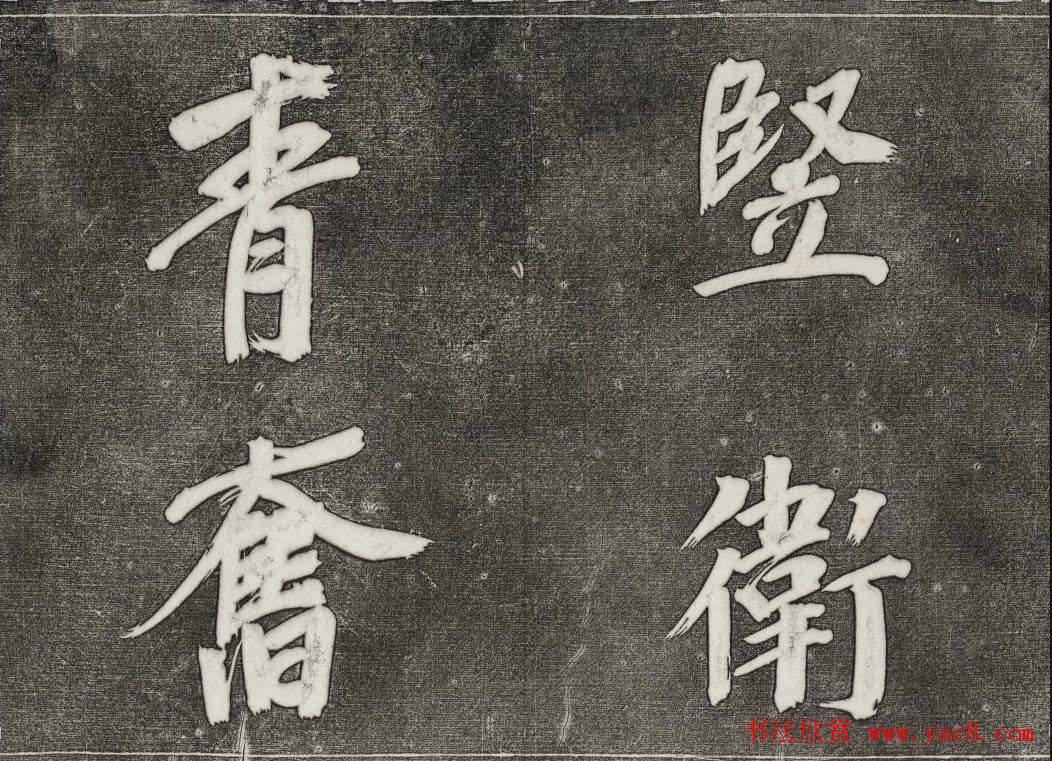 竪衛
青奮
书法欣赏 www.yac8.com